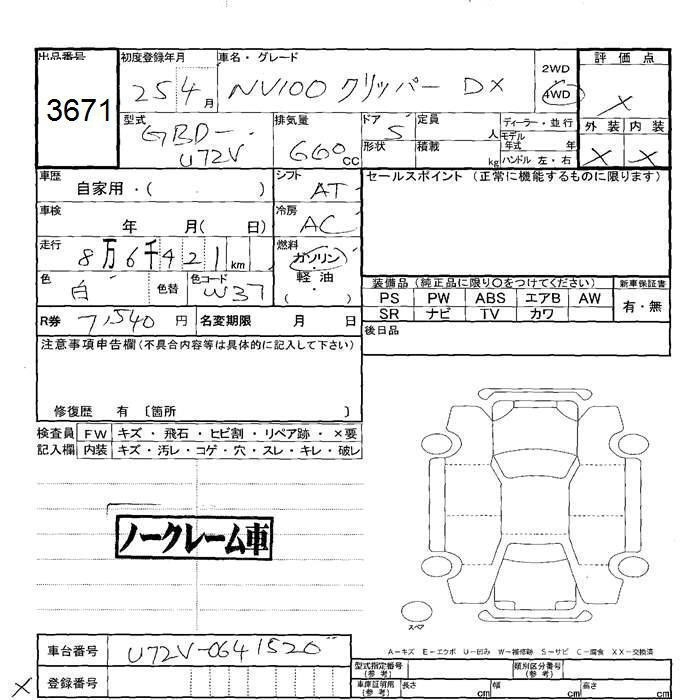 出品番号
3671
初度登録年月
25 4 月
車名・グレード
NV100 クリッパー DX
2WD
4WD
評価点
X
外装 内装
X X
型式
GBD-
U72V
排気量
660 cc
ドア
5
形状
定員
人
積載
kg
ディーラー・並行
モデル
年式 年
ハンドル 左・右
車歴
自家用・( )
シフト
AT
セールスポイント (正常に機能するものに限ります)
車検
年 月( 日)
冷房
AC
走行
8万6千421 km
燃料
ガソリン・
軽油
( ・ )
色
白
色替
色コード
W37
装備品 (純正品に限り○をつけてください)
新車保証書
PS PW ABS エアB AW
有・無
SR ナビ TV カワ
R券 7,540 円
名変期限 月 日
後日品
注意事項申告欄(不具合内容等は具体的に記入して下さい)
修復歴 有 〔箇所 〕
検査員 FW キズ・飛石・ヒビ割・リペア跡・×要
記入欄 内装 キズ・汚レ・コゲ・穴・スレ・キレ・破レ
ノークレーム車
スペア
A-キズ E-エクボ U-凹み W-補修跡 S-サビ C-腐食 XX-交換済
車台番号
U72V-0641520
X
登録番号
型式指定番号
(参考)
類別区分番号
(参考)
車庫証明用
(参考)
長さ cm
幅 cm
高さ cm